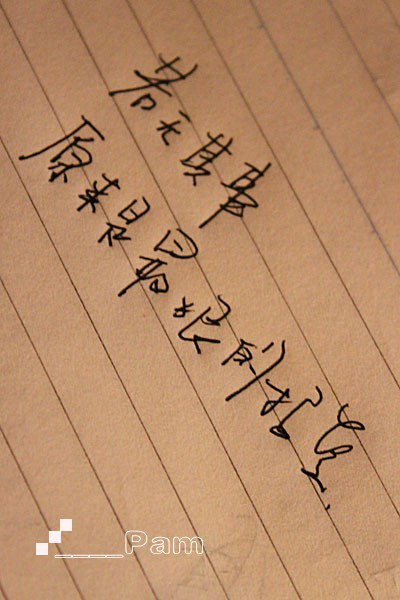 若无其事
原来是最狠的报复.
____Pam